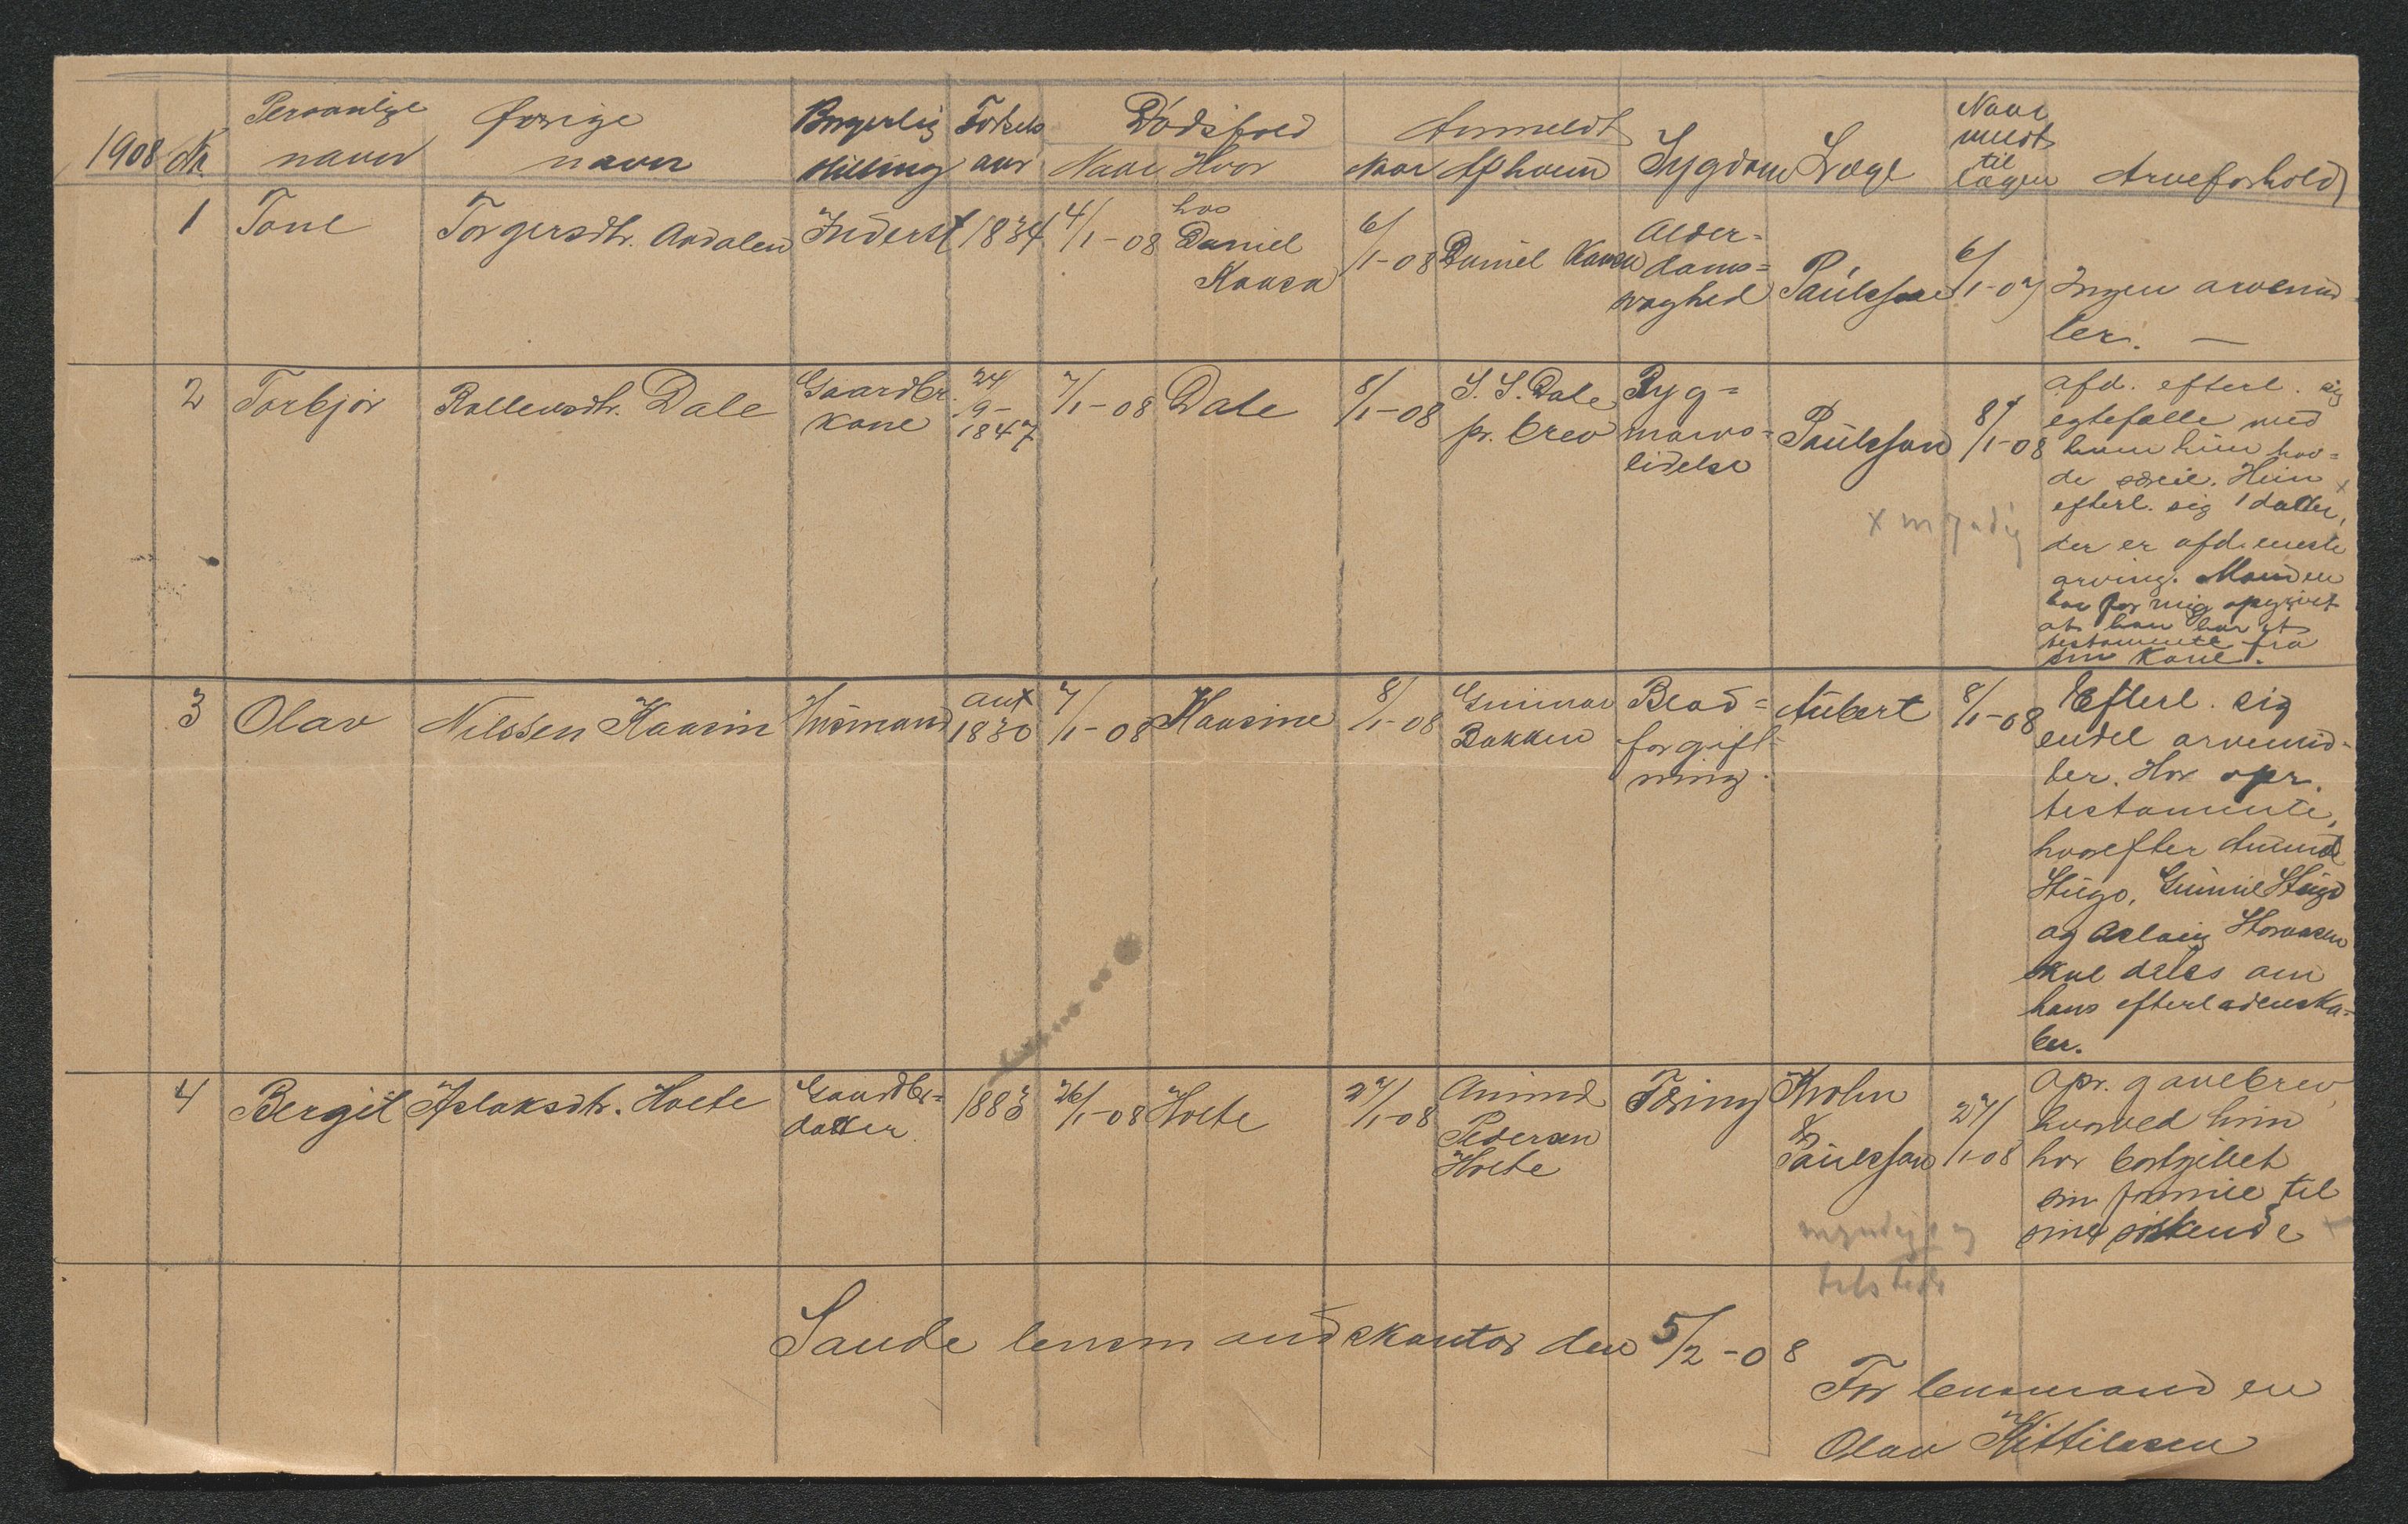 1908 Nr. Personlige navn Øvrige navn Borgerlig stilling Fødsels aar Dødsfald Naar Hvor Anmeldt Naar Af hvem Sygdom Læge Naar meldt til lægen Arveforhold
1 Tone Torgersdtr. Aadalen Inderst 1834 4/1-08 hos
Daniel
Kaasa
6/1-08 Daniel Kaasa Alder=
doms=
svaghed
Paulsson 6/1-07 Ingen arvemid
ler. —
2 Torbjør Rollevsdtr. Dale Gaardbr.
kone
24/9-
1847
7/1-08 Dale 8/1-08 S. S. Dale
pr. brev
Ryg=
marvs=
lidelse
Paulsson 8/1-08
afd. efterl. sig
egtefælle med
hvem hun hav=
de særeie. Hun x
efterl. sig 1 datter,
der er afd. eneste
arving. Manden
har for mig opgivet
at han har et
testamente fra
sin kone.
x myndig
3 Olav Nilssen Haasin Husmand ant
1830
7/1-08 Haasine 8/1-08 Gunnar
Bakken
Blod=
forgift
ning.
Aubert 8/1-08 Efterl. sig
endel arvemid=
ler. Har opr.
testamente,
hvorefter Amund
Stugo, Gunnil Stugo
og Aslaug Storaasen
skal deles om
hans efterladenska=
ber.
4 Bergit Aslaksdtr. Holte Gaardbr=
datter
1883 26/1-08 Holte 27/1-08 Amund
Pedersen
Holte
Tæring Krohn
og
Paulsson
27/1-08
Opr. gavebrev,
hvorved hun
har bortgivet
sin formue til
sine søskende x
myndige og
tilstede
Saude lensmandskontor den 5/2-08
For lensmanden
Olav Kittilsen